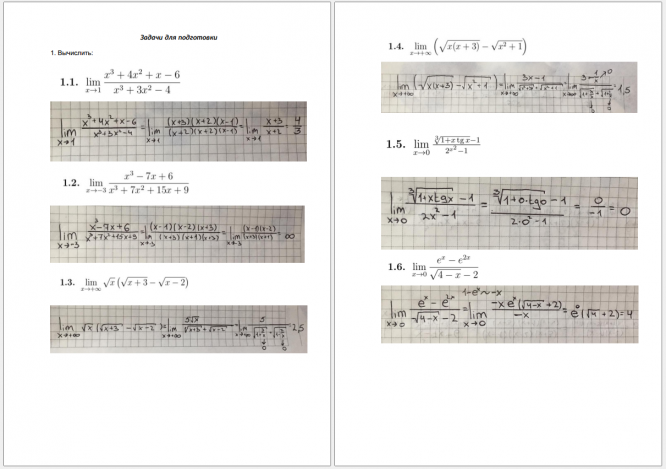 Задачи для подготовки
1. Вычислить:
1.1. lim x→1 (x³ + 4x² + x − 6)/(x³ + 3x² − 4)
lim x→1 (x³+4x²+x−6)/(x³+3x²−4) = lim x→1 (x+3)(x+2)(x−1)/(x+2)(x+2)(x−1) = lim x→1 (x+3)/(x+2) = 4/3
1.2. lim x→−3 (x³ − 7x + 6)/(x³ + 7x² + 15x + 9)
lim x→−3 (x³−7x+6)/(x³+7x²+15x+9) = lim x→−3 (x−1)(x−2)(x+3)/(x+3)(x+1)(x+3) = lim x→−3 (x−1)(x−2)/(x+3)(x+1) = ∞
1.3. lim x→+∞ √x(√x + 3 − √x − 2)
lim x→+∞ √x(√x+3 − √x−2) = lim x→+∞ 5√x/(√x+3 + √x−2) = lim x→+∞ 5 = 2,5
1.4. lim x→+∞ (√x(x + 3) − √x² + 1)
lim x→+∞ (√x(x+3) − √x²+1) = lim x→+∞ 3x−1 = lim x→+∞ = 1,5
1.5. lim x→0 (∛1+x tg x −1)/(2^x² −1)
lim x→0 (∛1+xtgx −1)/(2x²−1) = (∛1+0·tg0 −1)/(2·0²−1) = 0/−1 = 0
1.6. lim x→0 (eˣ − e²ˣ)/(√4 − x − 2)
1−eˣ ~ −x
lim x→0 (eˣ − e²ˣ)/(√4−x −2) = lim x→0 −xeˣ(√4−x +2)/−x = e⁰(√4 +2) = 4